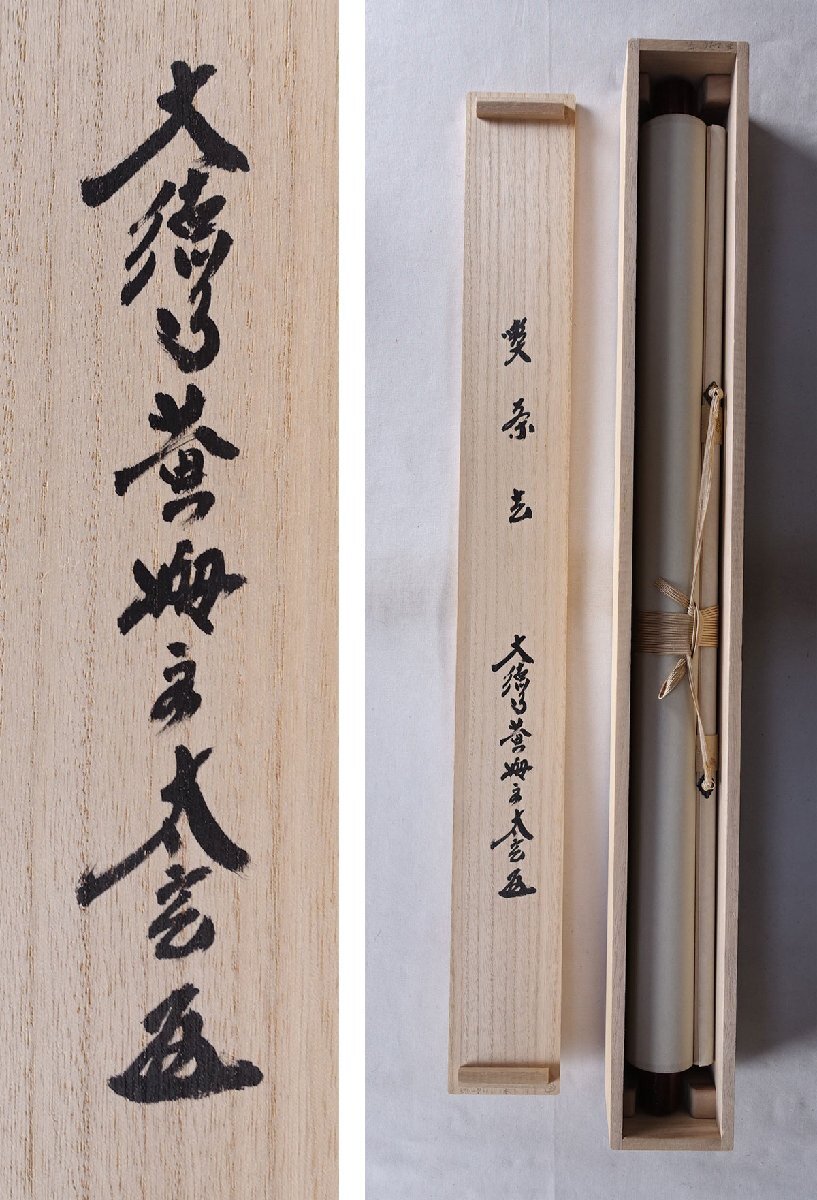 大徳寺黄梅主太玄
喫茶去 大徳寺黄梅主太玄